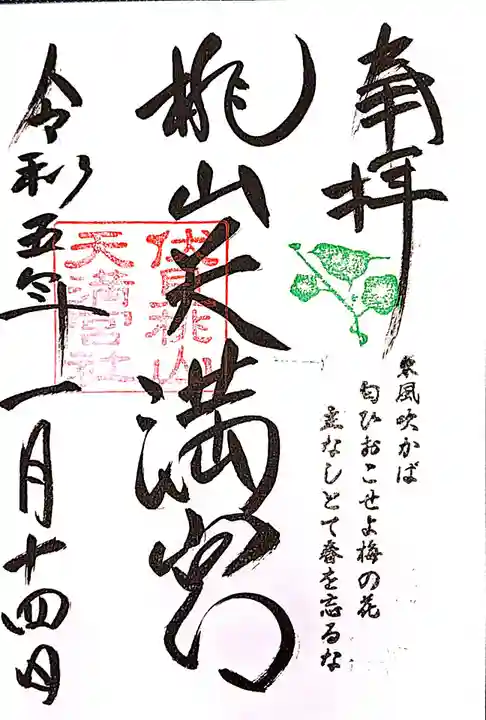 奉拝
東風吹かば
匂ひおこせよ梅の花
主なしとて春を忘るな
桃山天満宮
伏見桃山
天満宮社
令和五年一月十四日